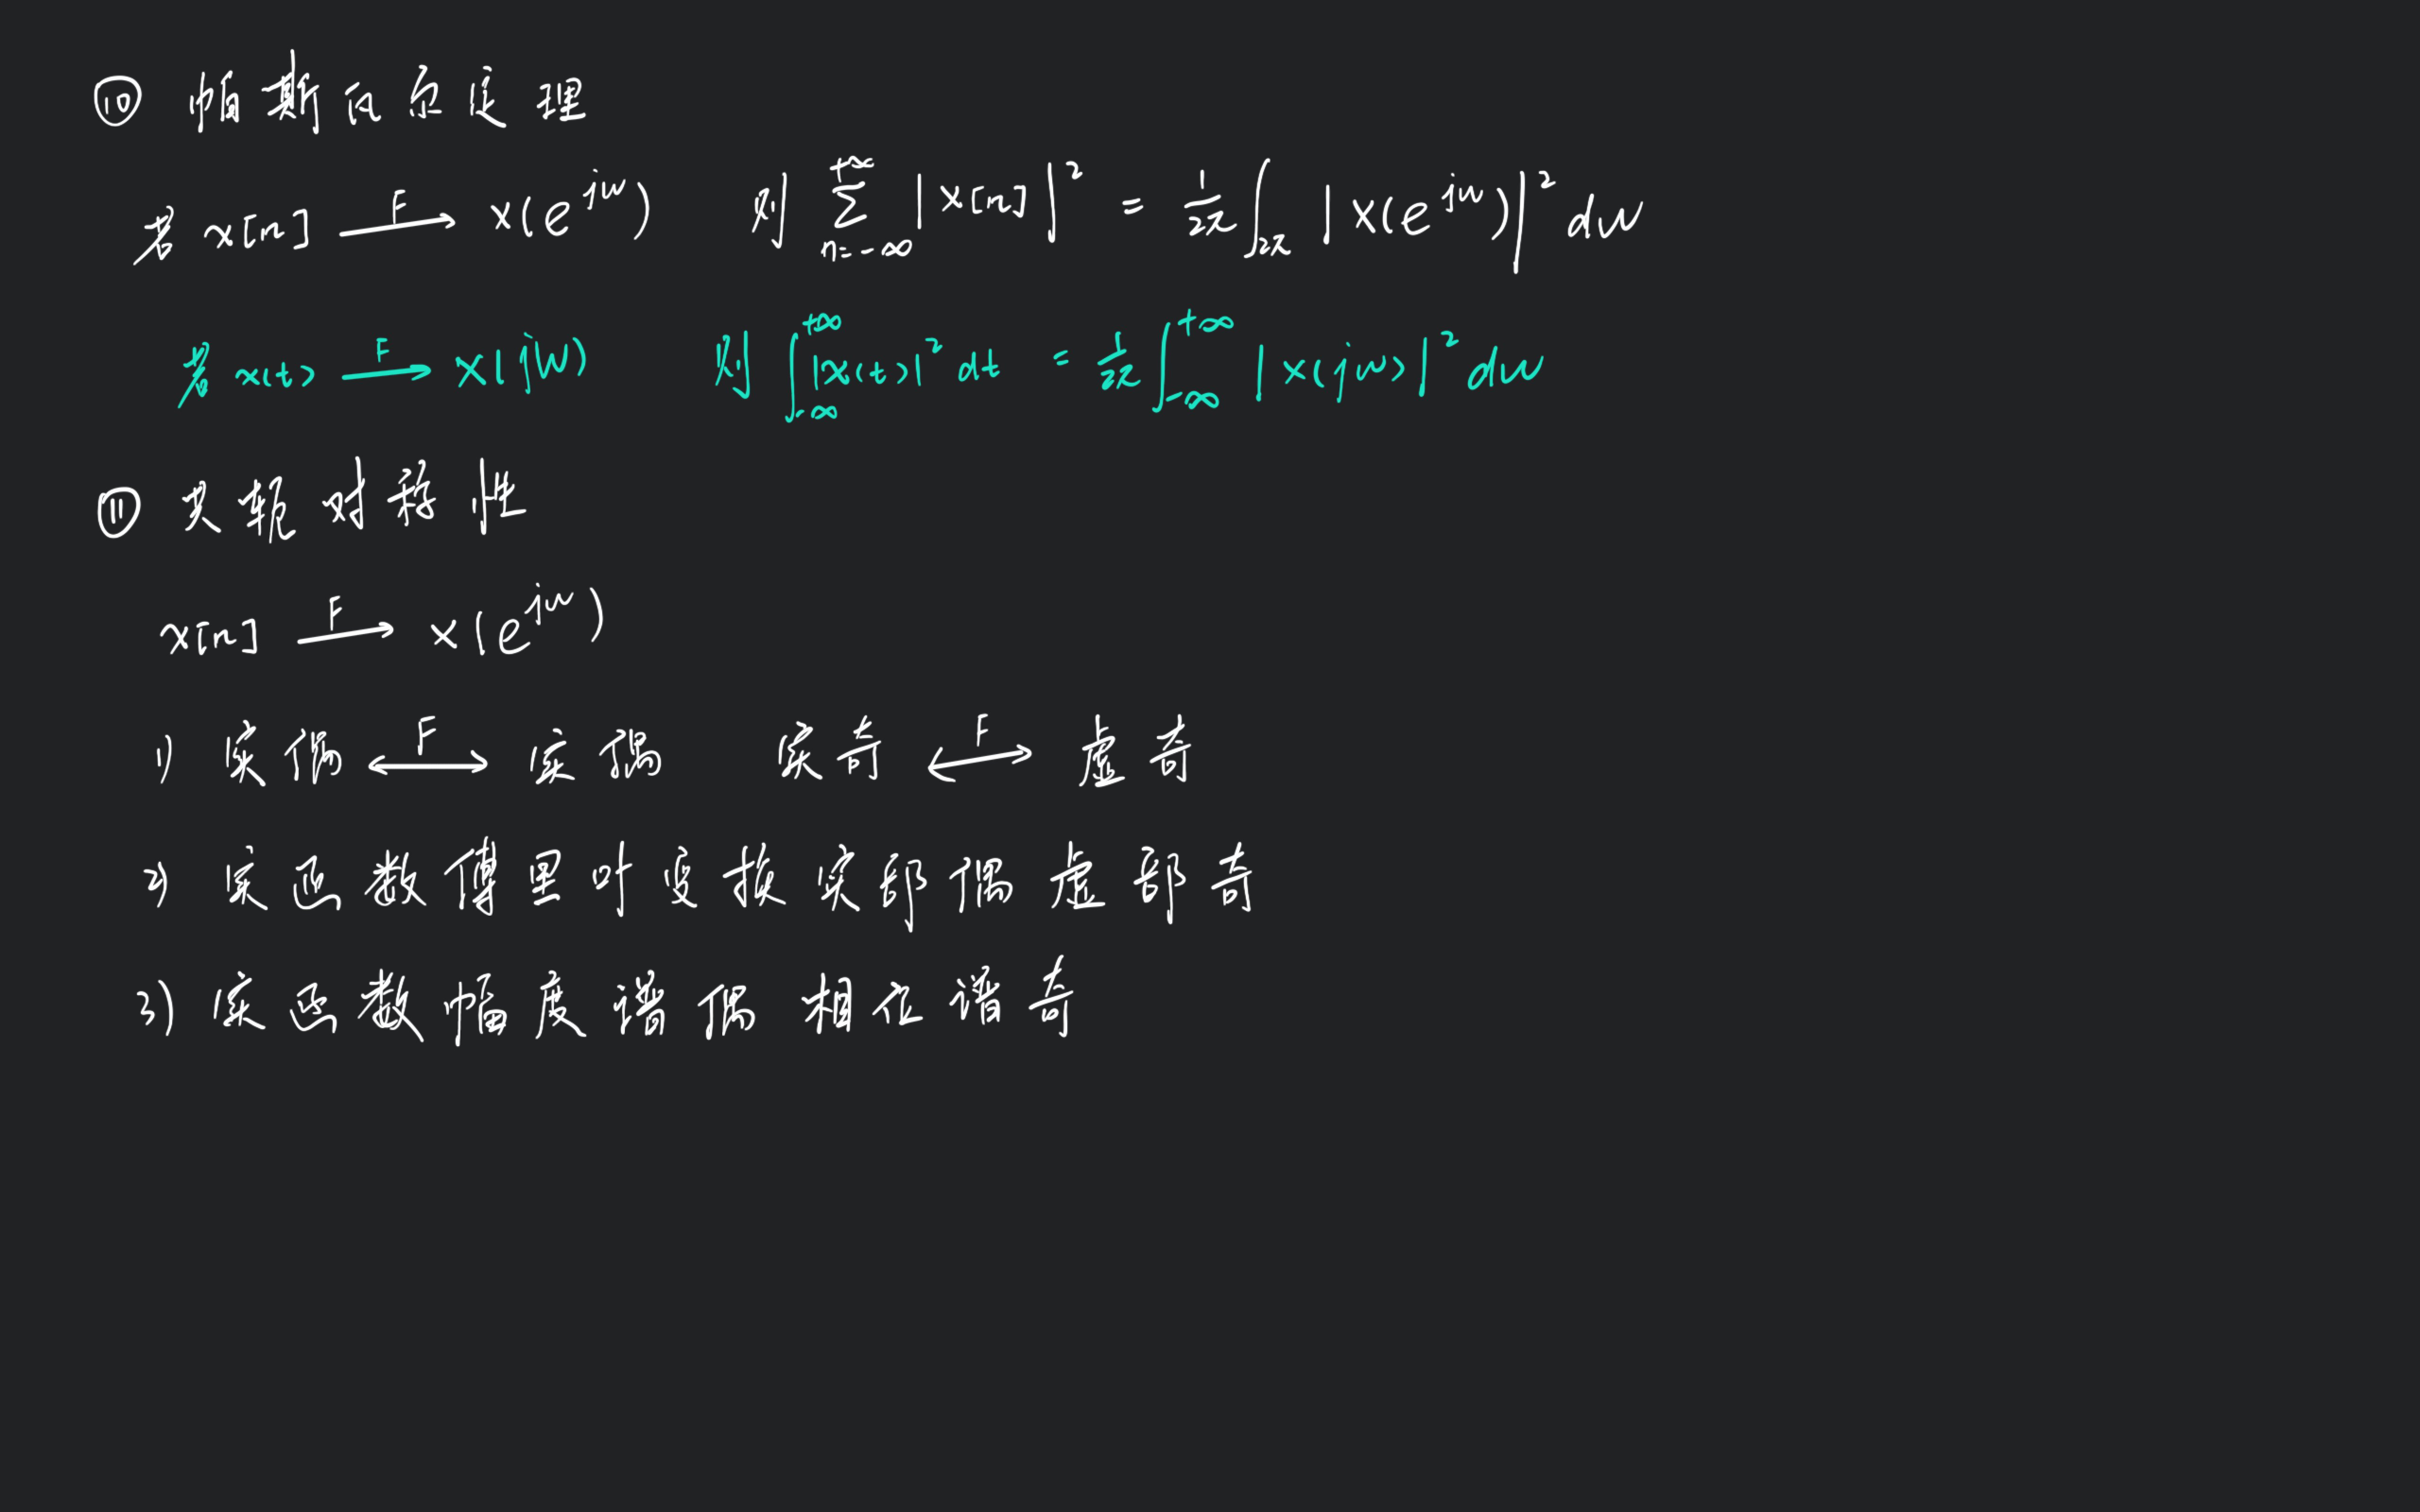 ⑩ 帕斯瓦尔定理
若 x[n] —F→ X(e^{jw}) 则 \sum_{n=-∞}^{+∞} |x[n]|^2 = \frac{1}{2π} \int_{2π} |X(e^{jw})|^2 dw
若 x(t) —F→ X(jw) 则 \int_{-∞}^{+∞} |x(t)|^2 dt = \frac{1}{2π} \int_{-∞}^{+∞} |X(jw)|^2 dw
⑪ 共轭对称性
x[n] —F→ X(e^{jw})
1) 实偶 ←F→ 实偶 实奇 ←F→ 虚奇
2) 实函数傅里叶变换实部偶虚部奇
3) 实函数幅度谱偶 相位谱奇